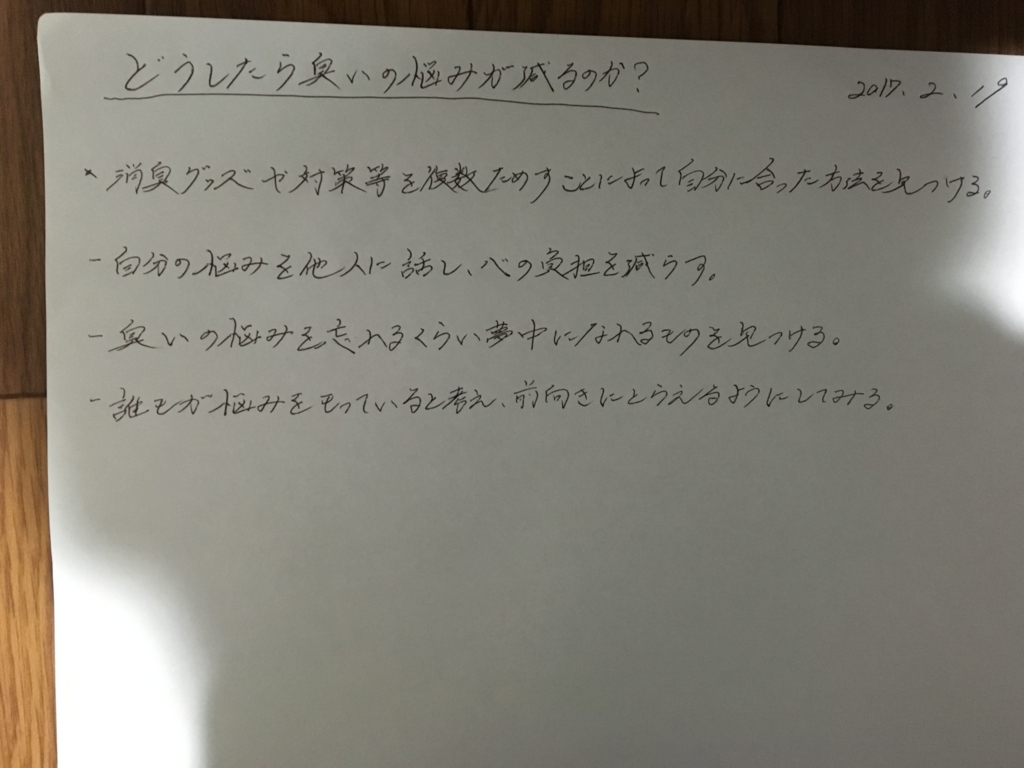 どうしたら臭いの悩みが減るのか?
2017. 2. 19
× 消臭グッズや対策等を複数ためすことによって自分に合った方法を見つける。
- 自分の悩みを他人に話し、心の負担を減らす。
- 臭いの悩みを忘れるくらい夢中になれるものを見つける。
- 誰もが悩みをもっていると考え、前向きにとらえるようにしてみる。